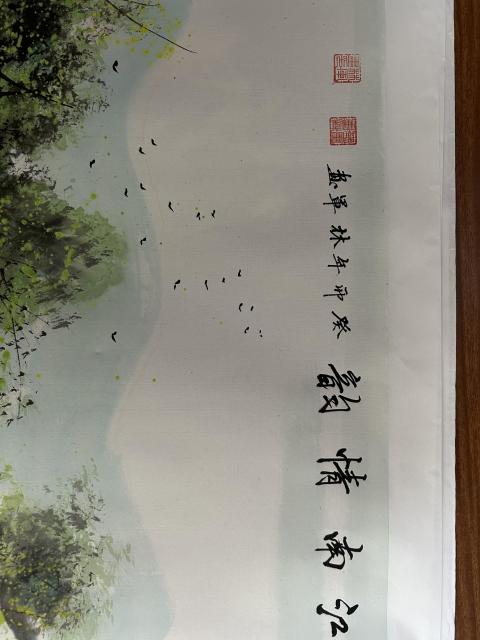 江南情韵 癸卯年林軍畫